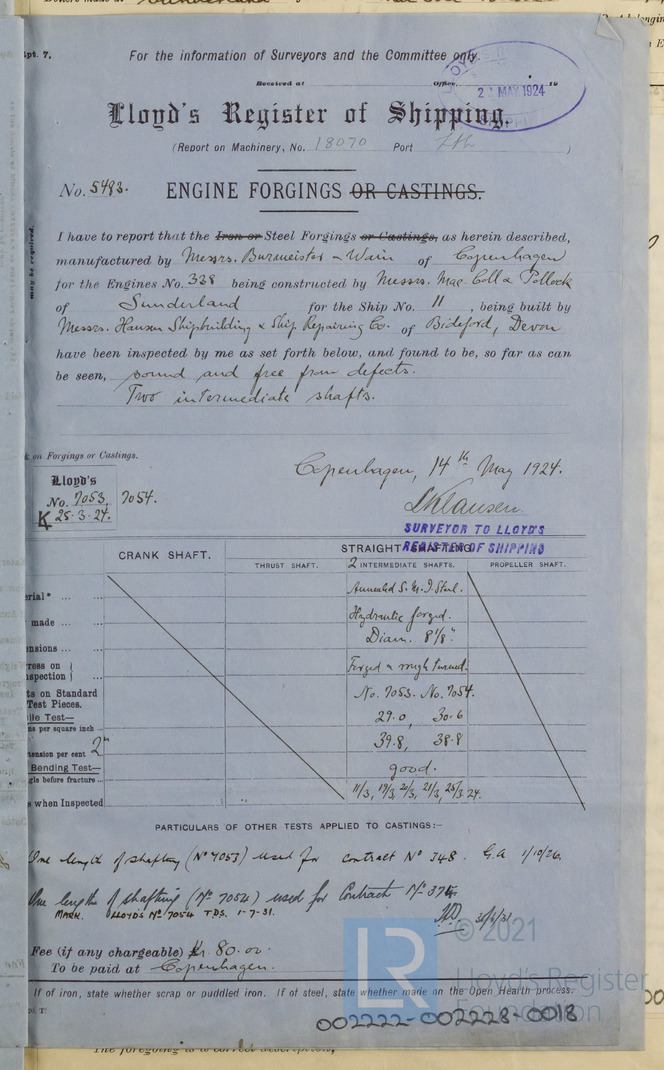 pt. 7.
For the information of Surveyors and the Committee only.
Received at Office, 19
2 MAY 1924
Lloyd's Register of Shipping.
(Report on Machinery, No. 18070 Port Lth )
No. 5493. ENGINE FORGINGS OR CASTINGS.
I have to report that the Iron or Steel Forgings or Castings, as herein described,
manufactured by Messrs. Burmeister & Wain of Copenhagen
for the Engines No. 338 being constructed by Messrs. Mac. Coll & Pollock
of Sunderland for the Ship No. 11 , being built by
Messrs. Hansen Shipbuilding & Ship Repairing Co. of Bideford, Devon
have been inspected by me as set forth below, and found to be, so far as can
be seen, sound and free from defects.
Two intermediate shafts.
may be required.
on Forgings or Castings.
Copenhagen, 14th May 1924.
Lloyd's
No. 7053, 7054.
K 25.3.24.
Klausen
SURVEYOR TO LLOYD'S
REGISTER OF SHIPPING
CRANK SHAFT. STRAIGHT SHAFTING
THRUST SHAFT. 2 INTERMEDIATE SHAFTS. PROPELLER SHAFT.
erial* ... ... Annealed S. M. I. Steel.
made ... ... Hydraulic forged.
ensions ... ... Diam. 8 1/8"
ress on
spection ... Forged & rough turned.
ts on Standard
Test Pieces. No. 7053. No. 7054.
ile Test—
ns per square inch ... 29.0, 30.6
tension per cent 2" 39.8, 38.8
Bending Test—
gle before fracture ... good.
s when Inspected 11/3, 19/3, 21/3, 25/3 24.
PARTICULARS OF OTHER TESTS APPLIED TO CASTINGS:—
One length of shafting (No 7053) used for contract No 348. G.A 1/10/26.
One length of shafting (No 7054) used for Contract No 375
MARK. LLOYD'S No 7054 T.D.S. 1-7-31.
Fee (if any chargeable) Kr. 80.00
To be paid at Copenhagen.
If of iron, state whether scrap or puddled iron. If of steel, state whether made on the Open Health process.
© 2021
LR
Lloyd's Register
Foundation
002222-002228-0018
The foregoing is a correct description,